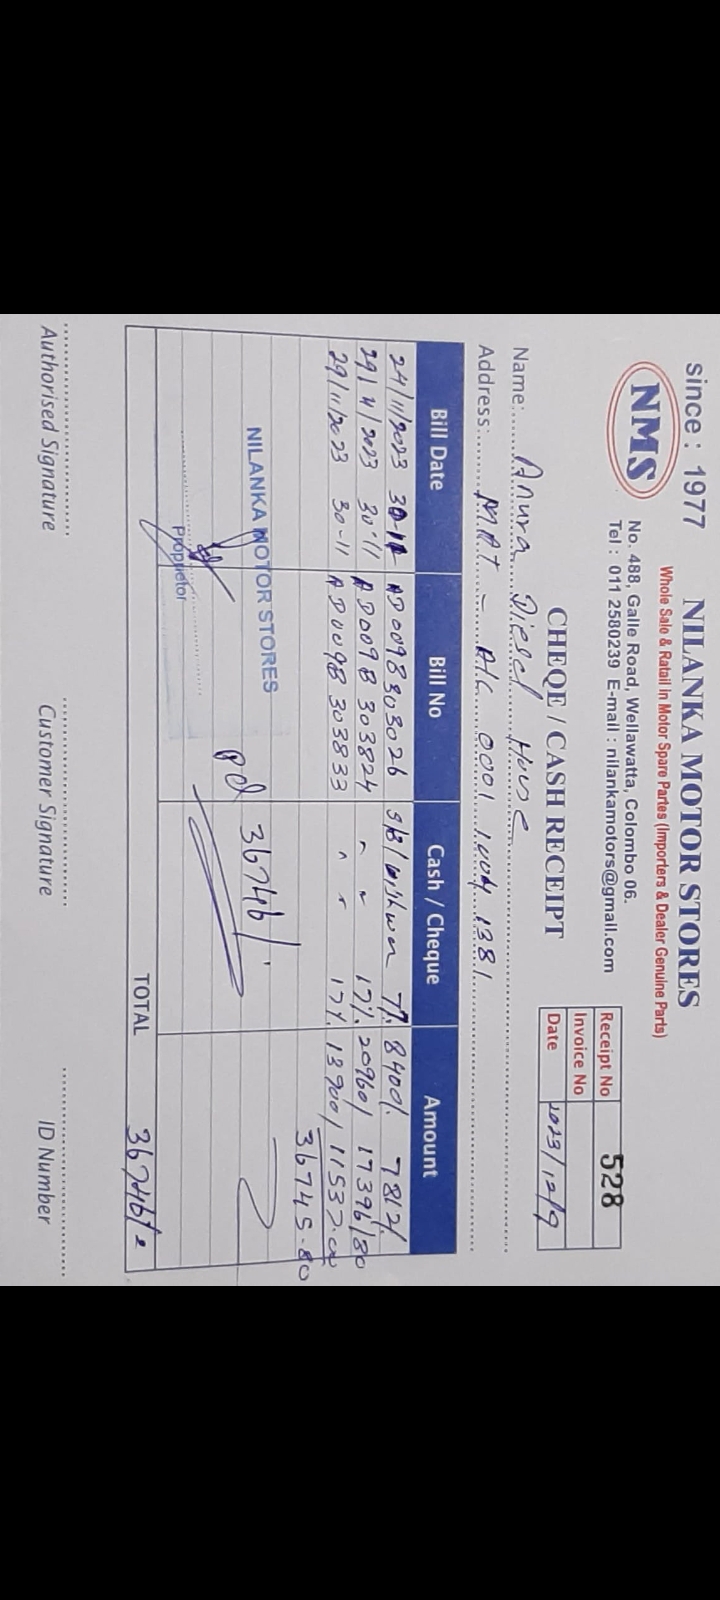 since : 1977
NILANKA MOTOR STORES
Whole Sale & Ratail in Motor Spare Partes (Importers & Dealer Genuine Parts)
NMS
No. 488, Galle Road, Wellawatta, Colombo 06.
Tel : 011 2580239 E-mail : nilankamotors@gmail.com
CHEQE / CASH RECEIPT
Receipt No 528
Invoice No
Date 2023/12/9
Name: Anura Diesel House
Address: M.A.T - A/C 0001 1004 1381
Bill Date Bill No Cash / Cheque Amount
24/11/2023 AD009B303026 7% 8400/. 7812/.
29/11/2023 30-11 AD009B303824 " " 17% 20960/ 17396/80
29/11/2023 30-11 AD009B303833 " " 17% 13900/ 11537.00
36745.80
NILANKA MOTOR STORES
Proprietor
pd 36746/.
TOTAL 36746/=
Authorised Signature Customer Signature ID Number